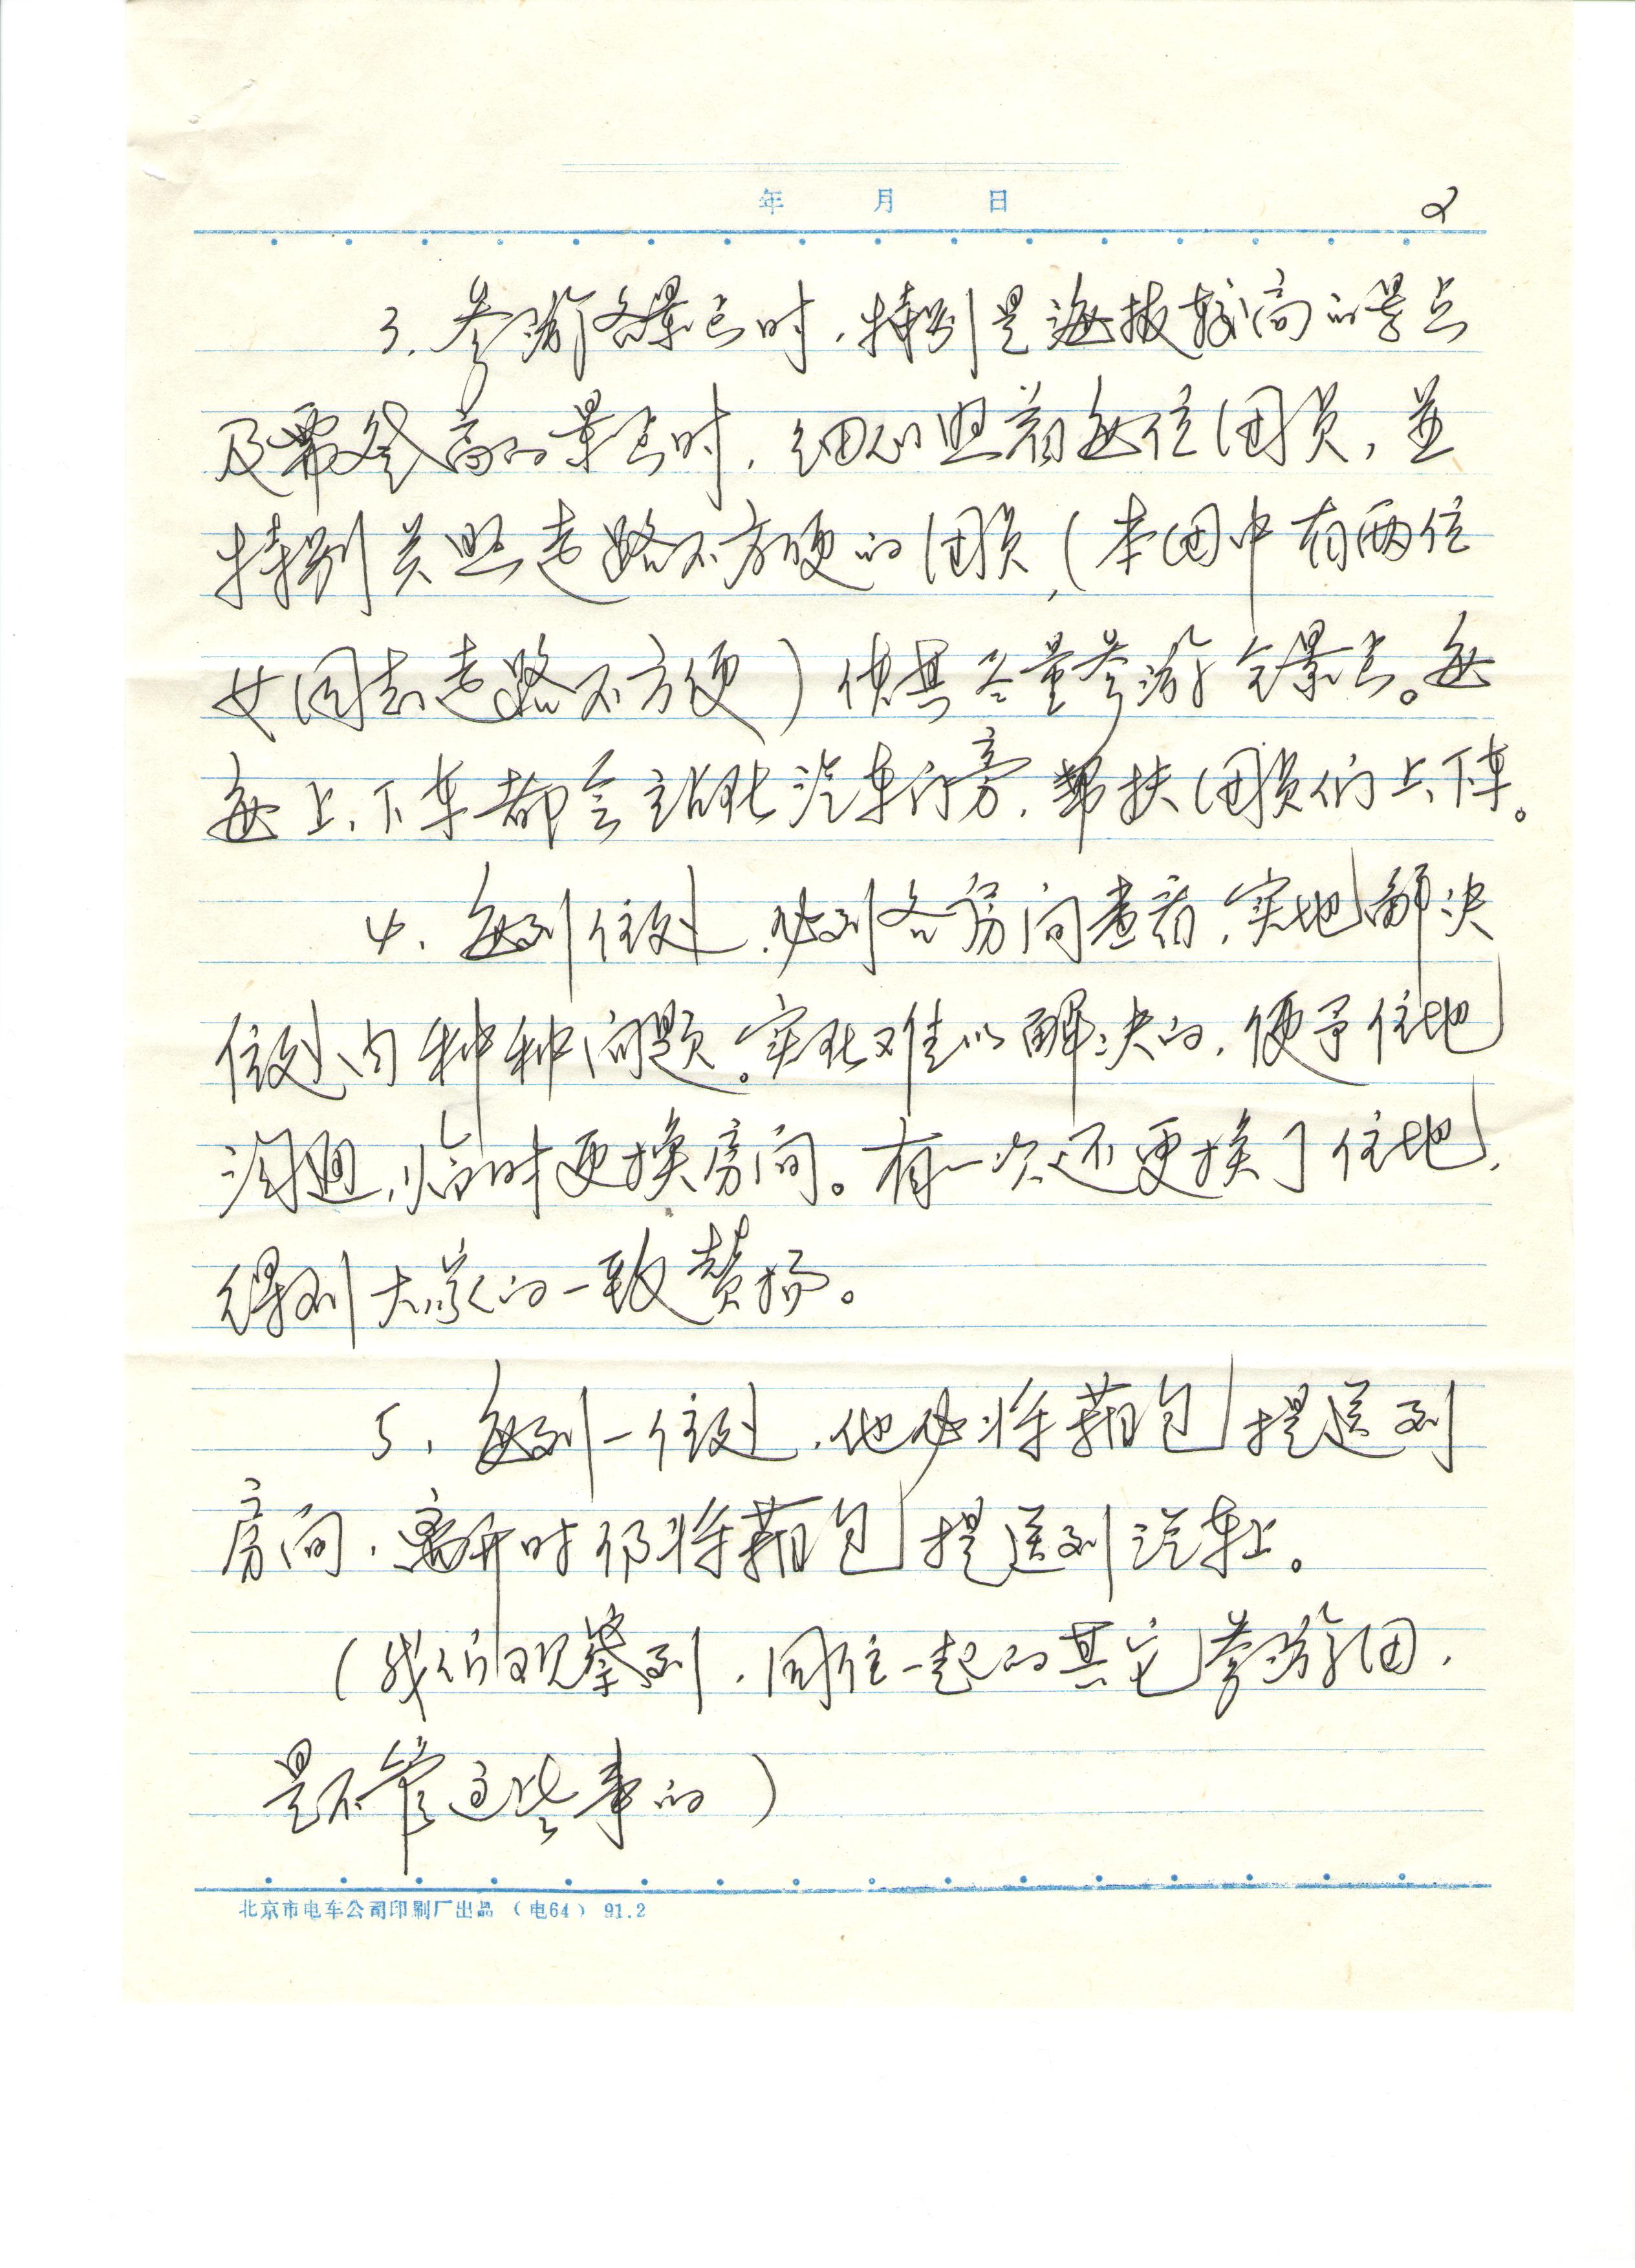 年 月 日
2
3. 参游各景点时，特别是海拔较高的景点
及需登高的景点时，细心照顾每位团员，並
特别关照走路不方便的团员（本团中有两位
女同志走路不方便）使其尽量参游全景点。每
每上、下车都会站在汽车门旁，帮扶团员们上、下车。
4. 每到住处，必到各房间查看，实地解决
住处内种种问题。实在难以解决的，便予住地
沟通，临时更换房间。有一次还更换了住地，
得到大家的一致赞扬。
5. 每到一住处，他必将箱包提送到
房间，离开时仍将箱包提送到汽车上。
（我们观察到，同住一起的其它参游团，
是不管这些事的）
北京市电车公司印刷厂出品（电64）91.2